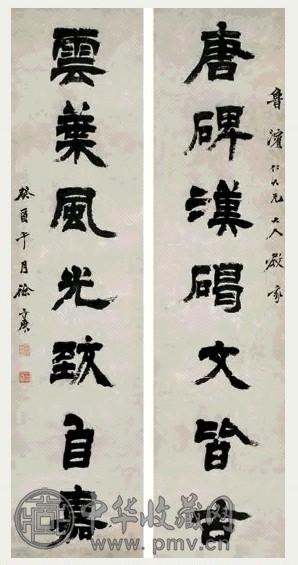 魯濱仁大兄大人
唐碑漢碣文皆
雲葉風光致自嘉
癸酉午月徐三庚
中华收藏网
www.pmv.cn